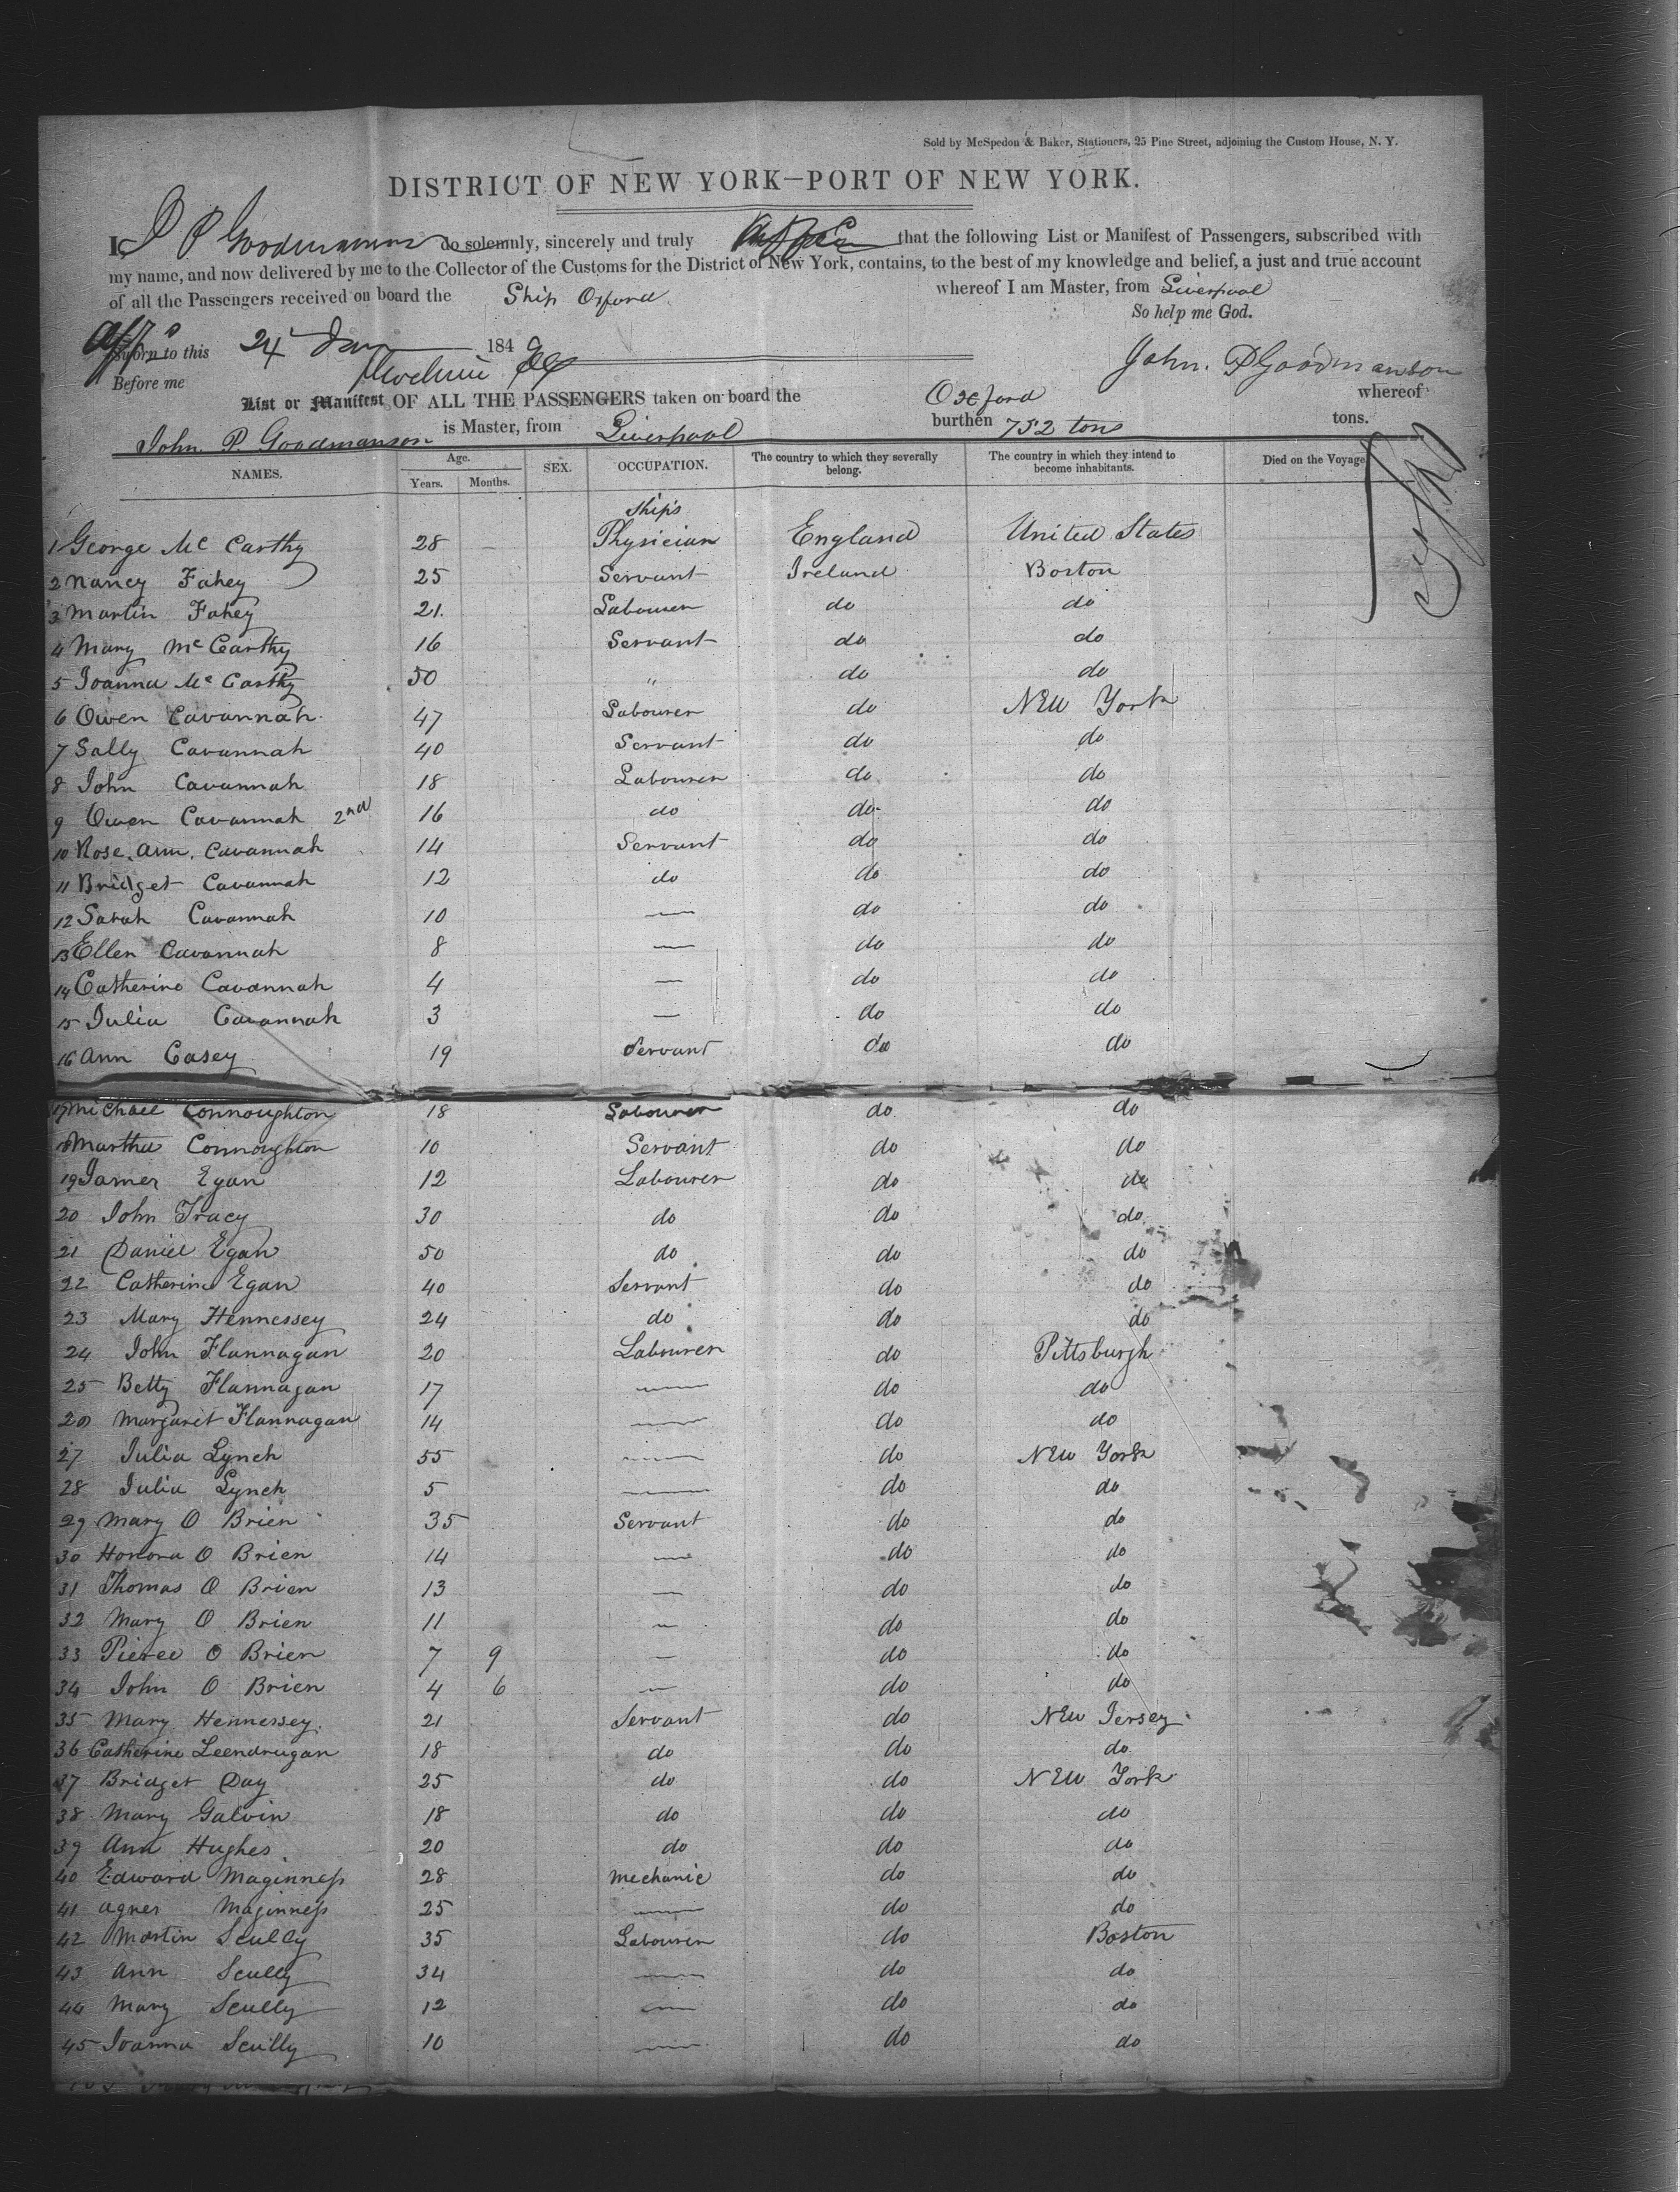 Sold by McSpedon & Baker, Stationers, 25 Pine Street, adjoining the Custom House, N. Y.
DISTRICT OF NEW YORK—PORT OF NEW YORK.
I, J P Goodmanson do solemnly, sincerely and truly that the following List or Manifest of Passengers, subscribed with
my name, and now delivered by me to the Collector of the Customs for the District of New York, contains, to the best of my knowledge and belief, a just and true account
of all the Passengers received on board the Ship Oxford whereof I am Master, from Liverpool
So help me God.
Sworn to this 24 Jan 184
Before me
John. P Goodmanson
List or Manifest OF ALL THE PASSENGERS taken on board the Oxford whereof
John. P. Goodmanson is Master, from Liverpool burthen 752 tons tons.
NAMES. Age. Years. Months. SEX. OCCUPATION. The country to which they severally belong. The country in which they intend to become inhabitants. Died on the Voyage.
Ship's
1 George Mc Carthy 28 — Physician England United States
2 Nancy Fahey 25 Servant Ireland Boston
3 Martin Fahey 21. Labourer do do
4 Mary Mc Carthy 16 Servant do do
5 Joanna Mc Carthy 50 " do do
6 Owen Cavannah 47 Labourer do New York
7 Sally Cavannah 40 Servant do do
8 John Cavannah 18 Labourer do do
9 Owen Cavannah 2nd 16 do do do
10 Rose Ann. Cavannah 14 Servant do do
11 Bridget Cavannah 12 do do do
12 Sarah Cavannah 10 — do do
13 Ellen Cavannah 8 — do do
14 Catherine Cavannah 4 — do do
15 Julia Cavannah 3 — do do
16 Ann Casey 19 Servant do do
17 Michael Connoughton 18 Labourer do do
18 Martha Connoughton 10 Servant do do
19 James Egan 12 Labourer do do
20 John Tracy 30 do do do
21 Daniel Egan 50 do do do
22 Catherine Egan 40 Servant do do
23 Mary Hennessey 24 do do do
24 John Flannagan 20 Labourer do Pittsburgh
25 Betty Flannagan 17 — do do
26 Margaret Flannagan 14 — do do
27 Julia Lynch 55 — do New York
28 Julia Lynch 5 — do do
29 Mary O Brien 35 Servant do do
30 Honora O Brien 14 — do do
31 Thomas O Brien 13 — do do
32 Mary O Brien 11 — do do
33 Pierce O Brien 7 9 — do do
34 John O Brien 4 6 — do do
35 Mary Hennessey 21 Servant do New Jersey
36 Catherine Leendrugan 18 do do do
37 Bridget Day 25 do do New York
38 Mary Galvin 18 do do do
39 Ann Hughes 20 do do do
40 Edward Maginness 28 Mechanic do do
41 Agnes Maginness 25 — do do
42 Martin Scully 35 Labourer do Boston
43 Ann Scully 34 — do do
44 Mary Scully 12 — do do
45 Joanna Scully 10 — do do